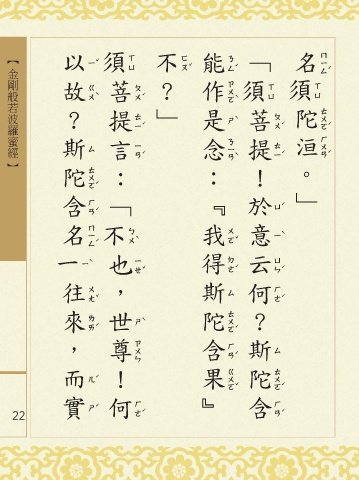 名須陀洹。」
「須菩提！於意云何？斯陀含
能作是念：『我得斯陀含果』
不？」
須菩提言：「不也，世尊！何
以故？斯陀含名一往來，而實
【金剛般若波羅蜜經】
22